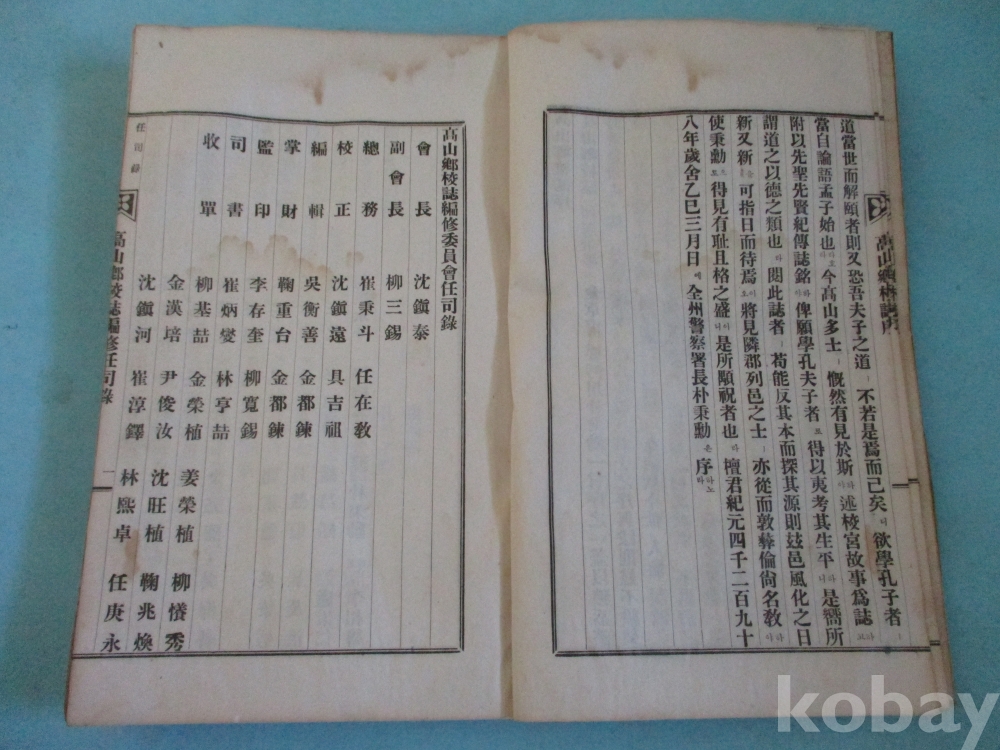 道當世而解頤者則又恐吾夫子之道ㅣ不若是焉而已矣니欲學孔子者ㅣ
當自論語孟子始也라今高山多士ㅣ慨然有見於斯하야述校宮故事爲誌하고
附以先聖先賢紀傳誌銘하야俾願學孔夫子者로得以夷考其生平하니是嚮所
謂道之以德之類也라閱此誌者ㅣ苟能反其本而探其源則玆邑風化之日
新又新을可指日而待焉이오將見隣郡列邑之士ㅣ亦從而敦彝倫尙名敎하야
使秉勳으로得見有耻且格之盛이니是所顒祝者也라檀君紀元四千二百九十
八年歲舍乙巳三月日에全州警察署長朴秉勳은序하노라
高山鄕校誌序
高山鄕校誌編修委員會任司錄
會長 沈鎭泰
副會長 柳三錫
總務 崔秉斗 任在敎
校正 沈鎭遠 具吉祖
編輯 吳衡善 金都鍊
掌財 鞠重台 金都鍊
監印 李存奎 柳寬錫
司書 崔炳燮 林亨喆
收單 柳基喆 金榮植 姜榮植 柳懺秀
金漢培 尹俊汝 沈旺植 鞠兆煥
沈鎭河 崔淳鐸 林熙卓 任庚永
任司錄
高山鄕校誌編修任司錄
一
kobay